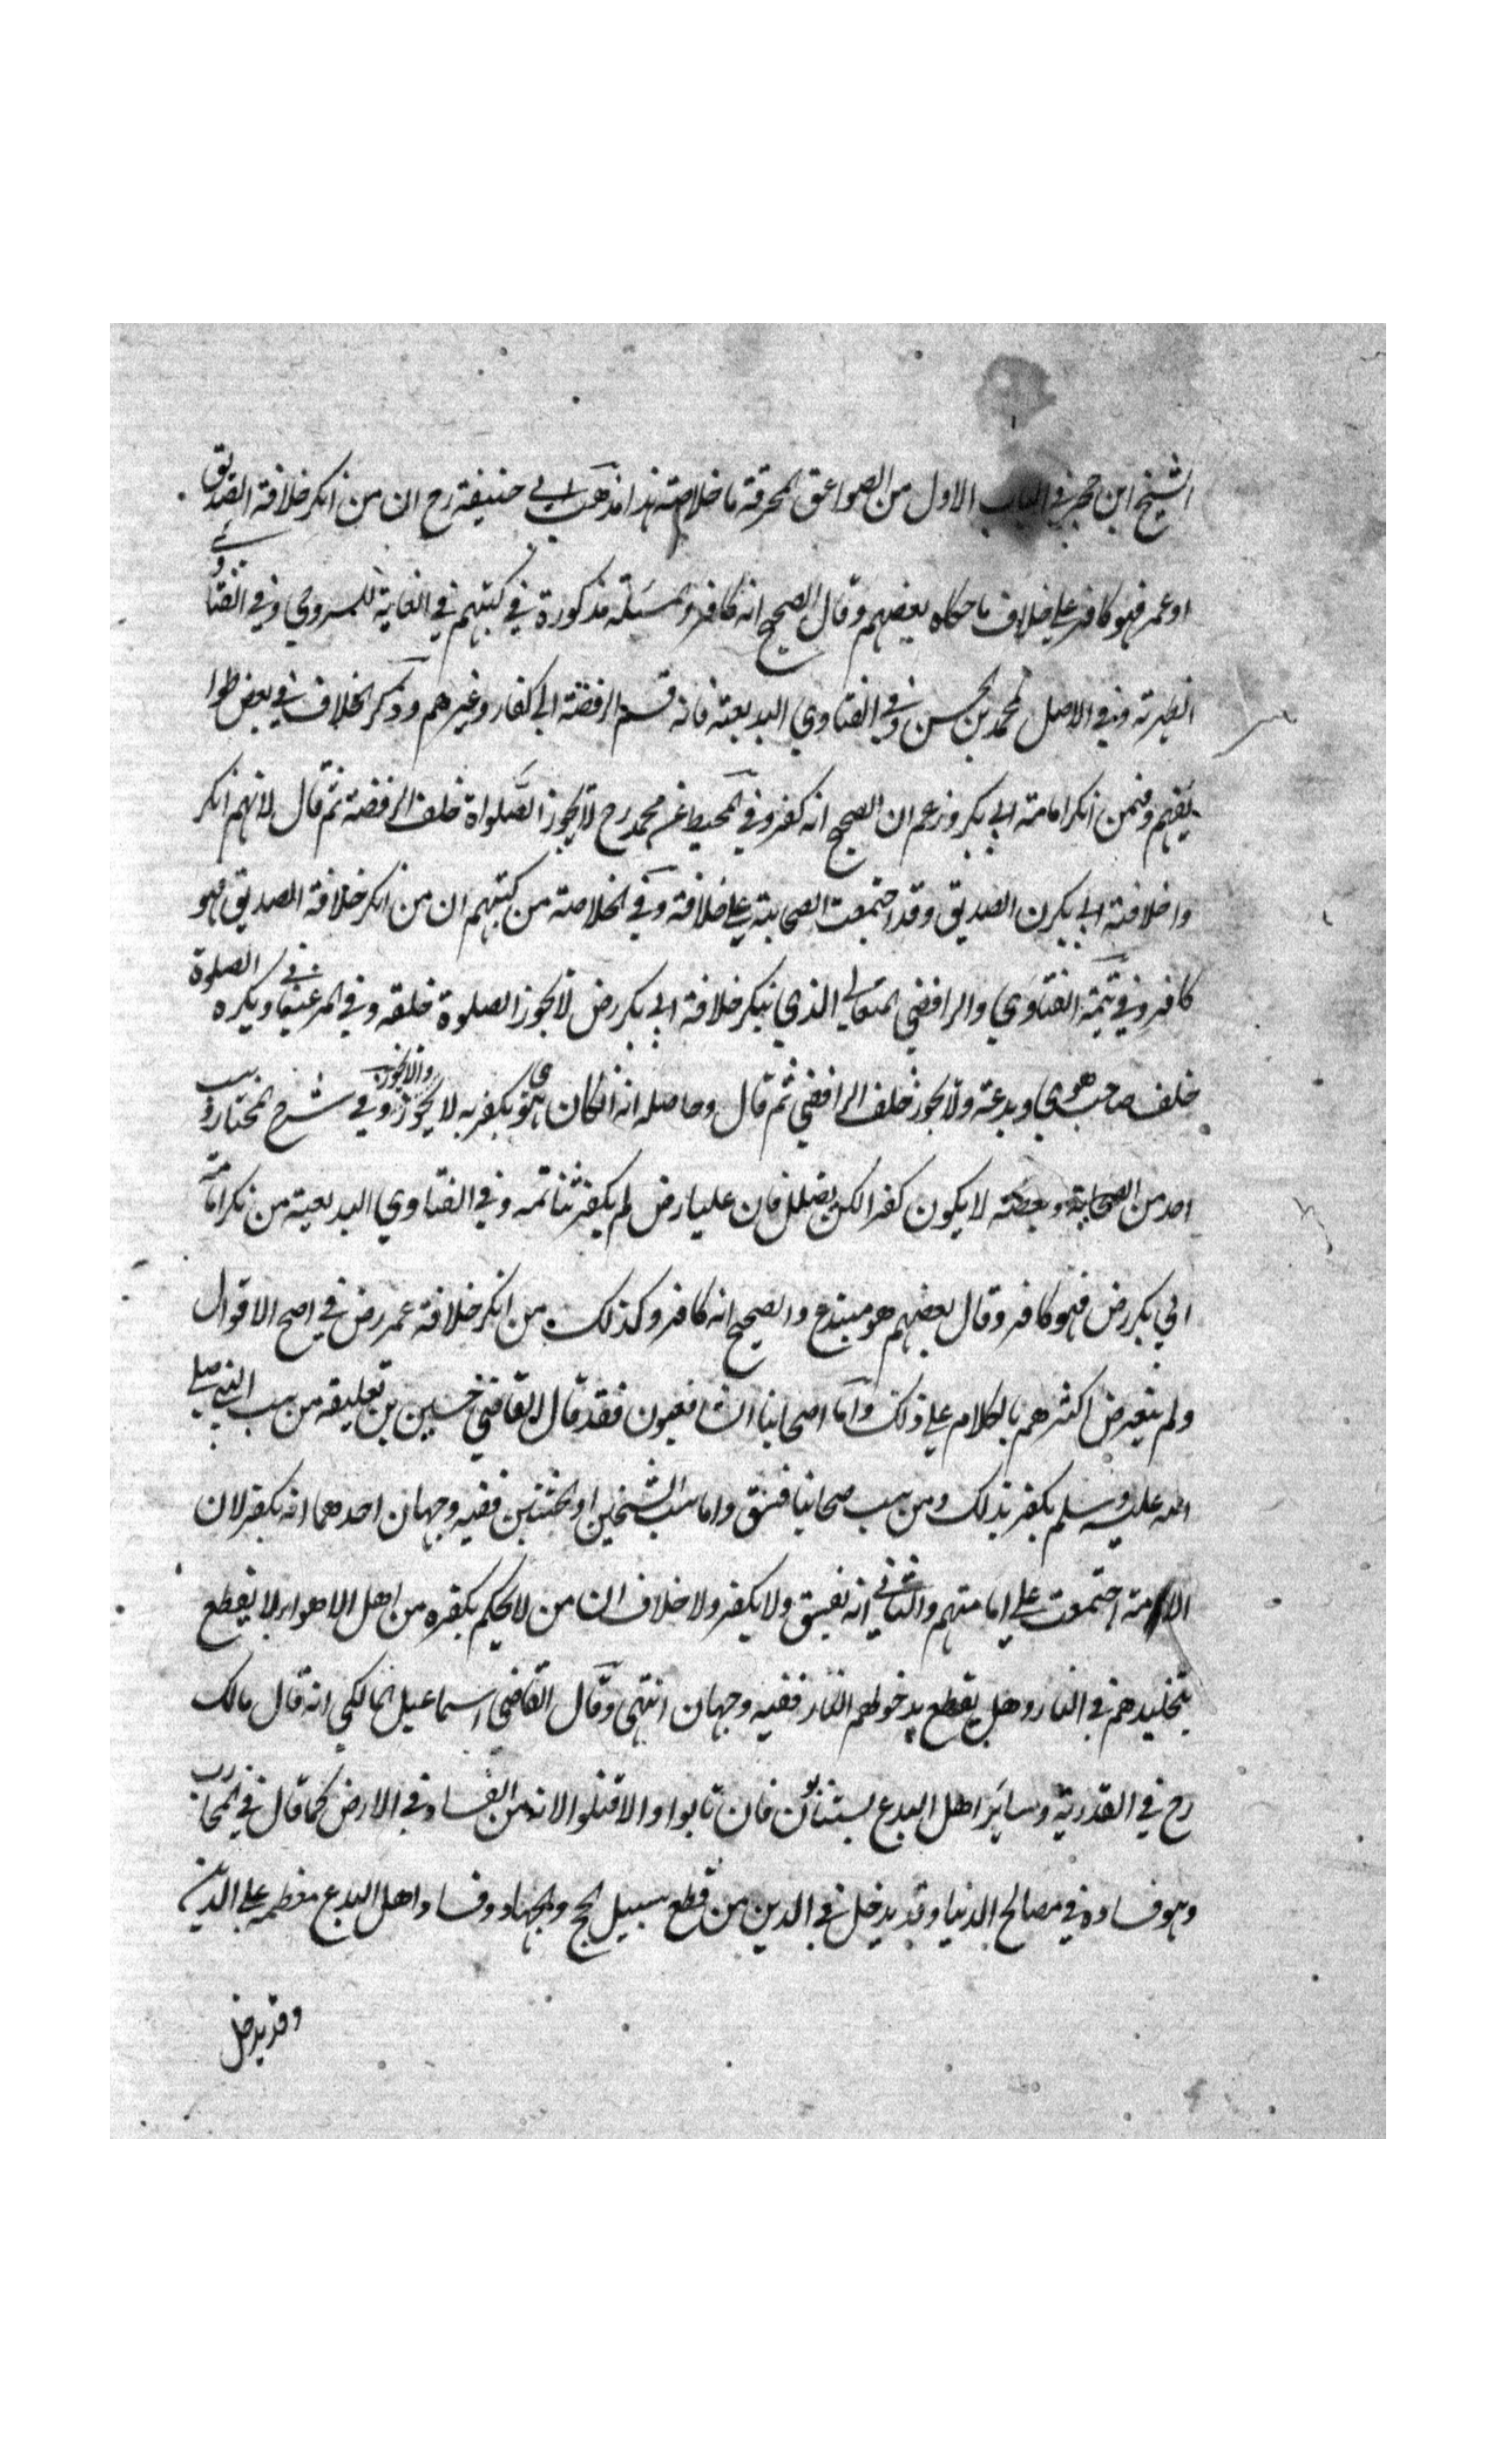 الشيخ ابن حجر في الباب الاول من الصواعق المحرقة ما خلاصته هذا مذهب ابي حنيفة رح ان من انكر خلافة الصديق
او عمر فهو كافر على خلاف ما حكاه بعضهم وقال الصحيح انه كافر والمسئلة مذكورة في كتبهم في الغاية للسروجي وفي الفتاوي
الظهيرته وفي الاصل لمحمد بن الحسن وفي الفتاوي البديعية فانه قسم الرفضة الى كفار وغيرهم وذكر الخلاف في بعض طوا
يفهم وفيمن انكر امامته ابي بكر وزعم ان الصحيح انه كفر وفي المحيط عن محمد رح لا يجوز الصلواة خلف الرفضة ثم قال لانهم انكر
وا خلافته ابي بكرن الصديق وقد اجتمعت الصحابته على خلافته وفي الخلاصته من كتبهم ان من انكر خلافة الصديق فهو
كافر وفي تتمة الفتاوي والرافضي المتغالي الذي ينكر خلافة ابي بكر رض لا يجوز الصلوة خلفه وفي المرغينا ويكره في الصلوة
خلف صاحب هوي وبدعته ولا يجوز خلف الرافضي ثم قال وحاصله انه ان كان هوي يكفر به لا يجوز والا يجوز وفي شرح المختار وسب
احد من الصحابة وبغضه لا يكون كفرا لكن يضلل فان عليا رض لم يكفر شاتمه وفي الفتاوي البديعية من نكر امامة
ابي بكر رض فهو كافر وقال بعضهم هو مبتدع والصحيح انه كافر وكذلك من انكر خلافة عمر رض في اصح الاقوال
ولم يتعرض اكثرهم بالكلام على ذلك واما اصحابنا الشافعيون فقد قال القاضي حسين بن تعليقه من سب النبي صلى
الله عليه وسلم يكفر بذلك ومن سب صحابيا فسق واما سب الشيخين او الختنين ففيه وجهان احدهما انه يكفر لان
الامة اجتمعت على امامتهم والثاني انه يفسق ولا يكفر ولا خلاف ان من لا يحكم بكفره من اهل الاهواء لا يقطع
بتخليدهم في النار وهل يقطع بدخولهم النار ففيه وجهان انتهى وقال القاضي اسماعيل المالكي انه قال مالك
رح في القدرية وساير اهل البدع يستتابون فان تابوا والا قتلوا لانه من الفساد في الارض كما قال في المحارب
وهو فساده في مصالح الدنيا وقد يدخل في الدين من قطع سبيل الحج والجهاد وفساد اهل البدع معظمه على الدين
وقد يدخل